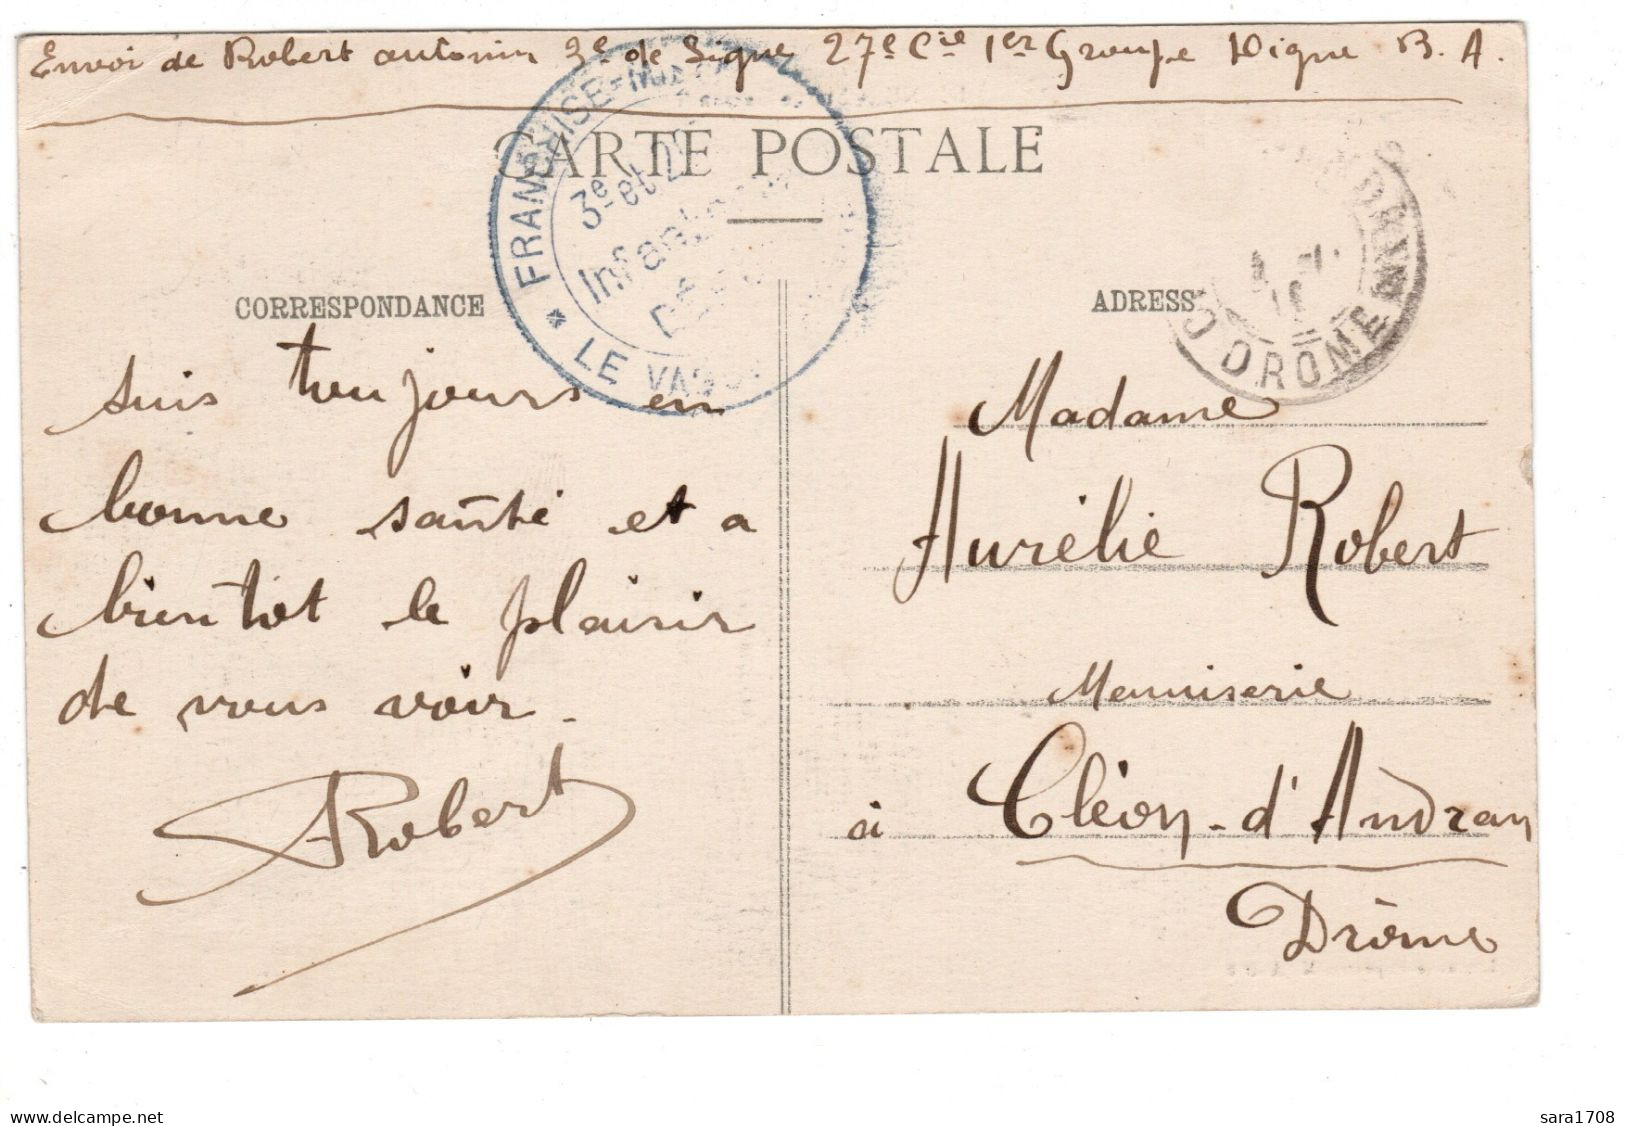 Envoi de Robert antonin 3e de Ligne 27e Cie 1er Groupe Digne B. A.
CARTE POSTALE
FRANCHISE
3e et 2
Infanterie
* LE VAG
CORRESPONDANCE
ADRESS
DROME
suis toujours en
bonne santé et a
bientot le plaisir
de vous voir.
Robert
Madame
Aurélie Robert
Menuiserie
à Cléon-d'Andran
Drôme
www.delcampe.net
sara1708